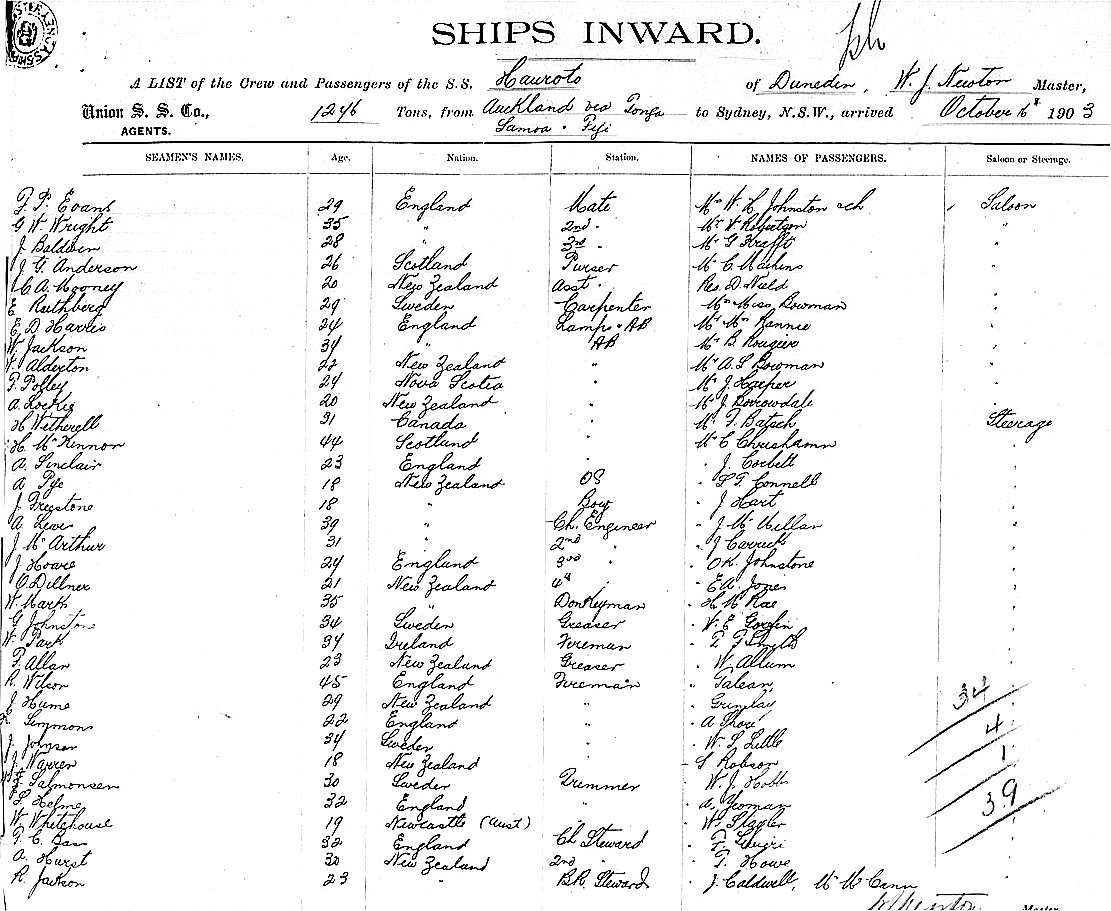 SHIPS INWARD.
A LIST of the Crew and Passengers of the S.S. Hauroto of Dunedin, W. J. Newton Master,
Union S. S. Co., 1246 Tons, from Auckland via Tonga to Sydney, N.S.W., arrived October 6th 1903
AGENTS. Samoa . Fiji
SEAMEN'S NAMES. Age. Nation. Station. NAMES OF PASSENGERS. Saloon or Steerage.
F. P. Evans 29 England Mate Mr W. H. Johnston Saloon
G W. Wright 35 " 2nd " Mr V Robertson "
J. Baldwin 28 " 3rd " Mr G Krafft "
J. G. Anderson 26 Scotland Purser Mr C. "
C A. Mooney 20 New Zealand Asst " Rev. D. "
E Ruthberg 29 Sweden Carpenter Miss Bowman "
E. D Harris 24 England Lamps AB Mr Mrs Rennie "
W. Jackson 34 " AB Mr B. Rougier "
Alderton 22 New Zealand " Mr A. S Bowman "
F. Polley 24 Nova Scotia " Mr J. Harper "
A. Lockie 20 New Zealand " Mr J Borrowdale "
H Wetherell 31 Canada " Mr F. Batsch Steerage
H. McKennon 44 Scotland " Mr C "
A. Sinclair 23 England " " J. Corbett "
A Pye 18 New Zealand OS " Connell "
J. Freestone 18 " Boy " J Hart "
A. Lever 39 " Ch. Engineer " J McMillan "
J. McArthur 31 " 2nd " " J Carrick "
J Hoare 24 England 3rd " " Johnstone "
O Dillner 21 New Zealand 4th " " E A. Jones "
W. Mark 35 " Donkeyman " H McRae "
G. Johnstone 34 Sweden Greaser " V. E "
W. Park 34 Ireland Fireman " "
F. Allan 23 New Zealand Greaser " W Allum "
R. Wilson 45 England Fireman " 34
J. Hume 29 New Zealand " " Grimlay
Simmons 22 England " " A Shore 4
J. Johnson 34 Sweden " " W. S. Little
J. Warren 18 New Zealand " " S Robson 1
Salmonsen 30 Sweden Trimmer " W. J. Hobbs
Helme 32 England " " A. Yeoman 39
W Whitehouse 19 Newcastle (Aust) " " W.
F. C. Bass 32 England Ch Steward " F.
A. Hurst 30 New Zealand 2nd " " F. Howe
R. Jackson 23 " B.R. Steward " J. Caldwell, Mr McCann
Master